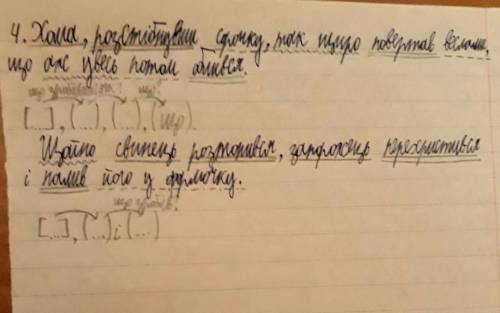 4. Хома, розстібнувши сорочку, так щиро повертав веслами,
що аж увесь потом облився.
що зробивши? як? що?
[...], (...), (...), (що)
Щойно свинець розтопився, запорожець перехрестився
і налив його у формочку.
що зробив?
[...], (...) і (...)